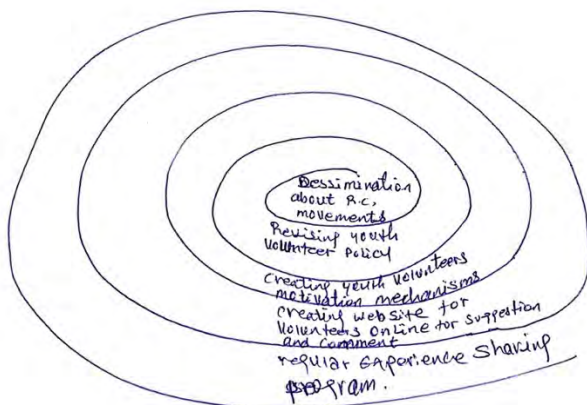 Dessimination
about R.C,
movements
Revising youth
Volunteer Policy
Creating youth volunteers
motivation mechanisms
creating website for
Volunteers Online for suggestion
and comment
regular experience sharing
program.